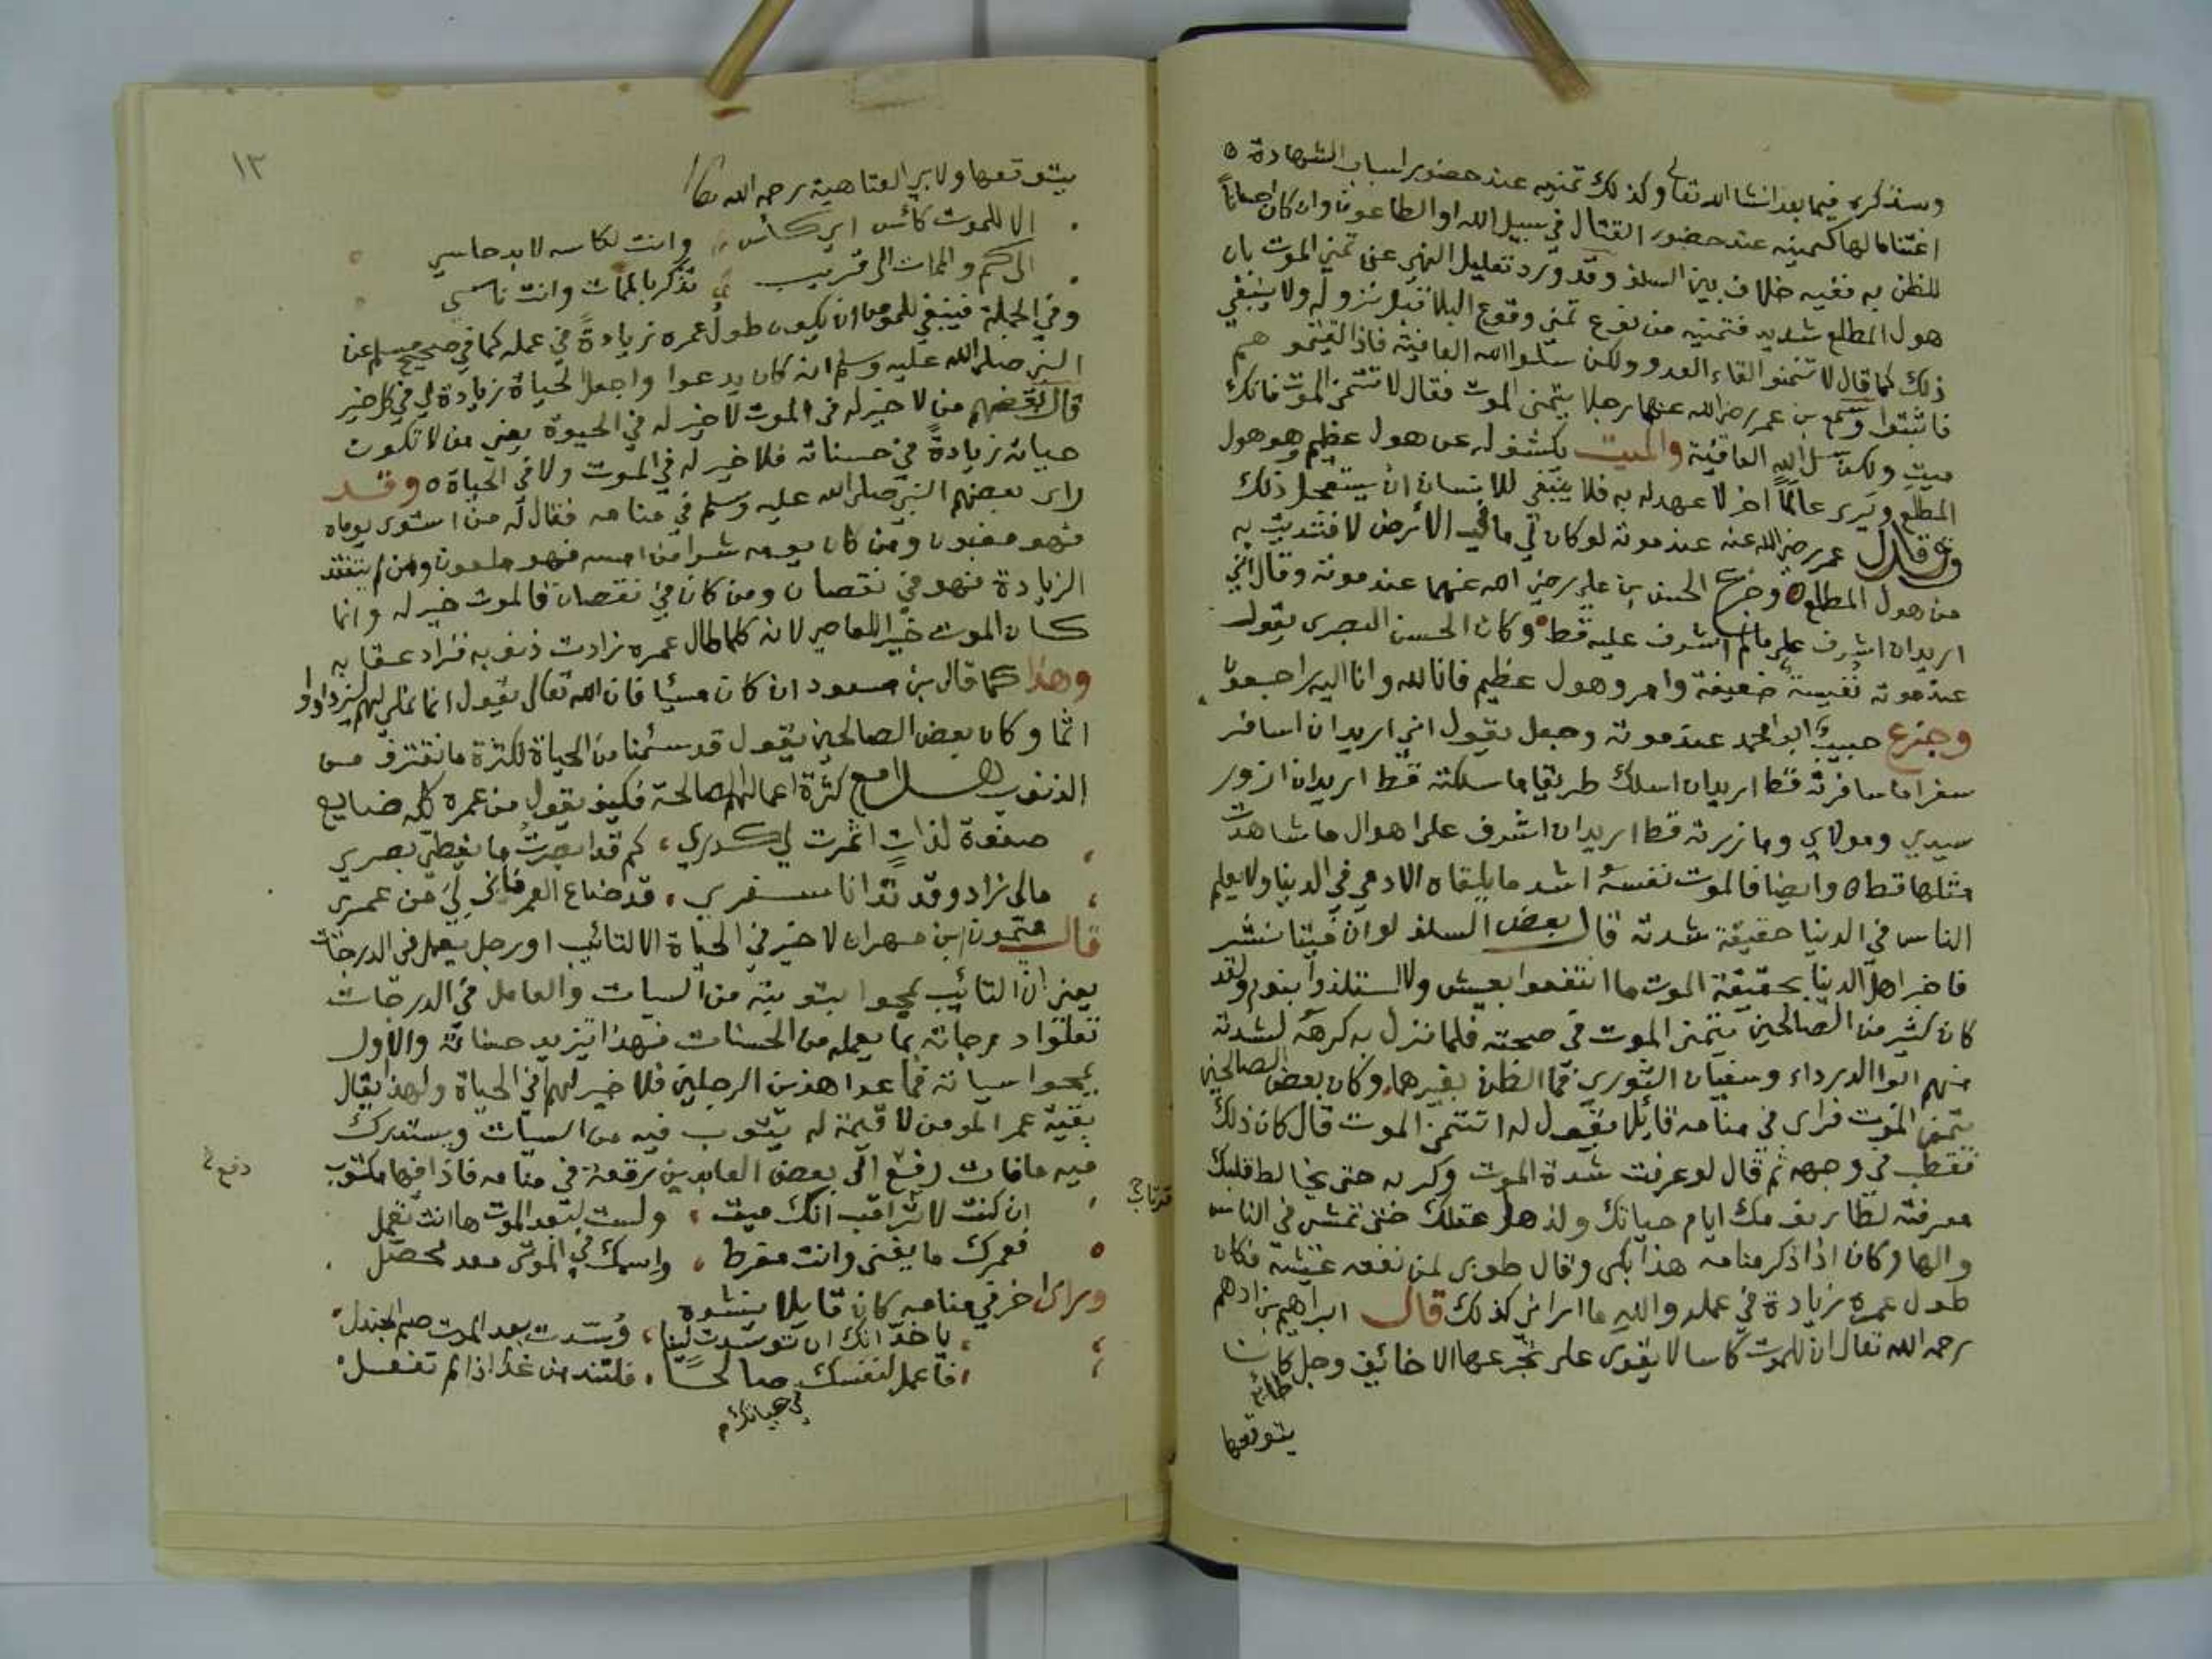 وسنذكره فيما بعد انشا الله تعالى وكذلك تمنيه عند حضور اسباب الشهادة
اغتناما لها كتمنيه عند حضور القتال في سبيل الله او الطاعون وان كان
للظن به ففيه خلاف بين السلف وقد ورد تعليل النهي عن تمني الموت بان
هول المطلع شديد فتمنيه من نوع تمني وقوع البلا قبل نزوله ولا ينبغي
ذلك كما قال لا تتمنو القاء العدو ولكن سلوا الله العافية فاذا لقيتمو هم
فاثبتوا وسمع بن عمر رضي الله عنهما رجلا يتمنى الموت فقال لا تتمن الموت فانك
ميت ولكن سل الله العافية والميت يكشف له عن هول عظيم وهو هول
المطلع ويرى عالمًا اخر لا عهد له به فلا ينبغي للانسان ان يستعجل ذلك
وقد قال عمر رضي الله عنه عند موته لو كان لي ما في الأرض لافتديت به
من هول المطلع وجزع الحسن بن علي رضي الله عنهما عند موته وقال اني
اريد ان اشرف على مالم اشرف عليه قط وكان الحسن البصري يقول
عند موته نفيسة ضعيفة وامر وهول عظيم فانا لله وانا اليه راجعون
وجزع حبيب ابو محمد عند موته وجعل يقول اني اريد ان اسافر
سفرا ما سافرته قط اريد ان اسلك طريقا ما سلكته قط اريد ان ازور
سيدي ومولاي وما زرته قط اريد ان اشرف على اهوال ما شاهدت
مثلها قط وايضا فالموت نفسه اشد ما يلقاه الادمي في الدنيا ولا يعلم
الناس في الدنيا حقيقة شدته قال بعض السلف لو ان ميتا نشر
فاخبر اهل الدنيا بحقيقة الموت ما انتفعوا بعيش ولا استلذوا بنوم ولقد
كان كثير من الصالحين يتمنى الموت في صحته فلما نزل به كرهه لشدته
منهم ابو الدرداء وسفيان الثوري فما الظن بغيرهما وكان بعض الصالحين
يتمنى الموت فراى في منامه قائلا يقول له اتتمنى الموت قال كان ذلك
فقطب في وجهه ثم قال لو عرفت شدة الموت وكربه حتى يخالط قلبك
معرفته لطار نومك ايام حياتك ولذهل عقلك حتى تمشي في الناس
والها وكان اذا ذكر منامه هذا بكى وقال طوبى لمن نفعه عيشه فكان
طول عمره زيادة في عمله والله ما اراني كذلك قال ابراهيم بن ادهم
رحمه الله تعالى ان للموت كاسا لا يقوى على تجرعها الا خائف وجل كان
يتوقعها
١٣
يتوقعها ولابي العتاهية رحمه الله
الا للموت كأس اي كأس وانت لكاسه لابد حاسي
الى كم والممات الى قريب تذكر بالممات وانت ناسي
وفي الجملة فينبغي للمومن ان يكون طول عمره زيادةً في عمله كما في صحيح مسلم عن
النبي صلى الله عليه وسلم انه كان يدعوا واجعل الحياة زيادة لي في كل خير
قال بعضهم من لا خير له في الموت لا خير له في الحيوة يعني من لا تكون
حياته زيادةً في حسناته فلا خير له في الموت ولا في الحياة وقد
راى بعضهم النبي صلى الله عليه وسلم في منامه فقال له من استوى يوماه
فهو مغبون ومن كان يومه شرا من امسه فهو ملعون ومن لم يتفقد
الزيادة فهو في نقصان ومن كان في نقصان فالموت خير له وانما
كان الموت خيرا للعاصي لانه كلما طال عمره زادت ذنوبه فزاد عقابه
وهذا كما قال بن مسعود ان كان مسيًا فان الله تعالى يقول انما نملي لهم ليزدادوا
اثما وكان بعض الصالحين يقول قد سئمنا من الحياة لكثرة ما نقترف من
الذنوب هذا مع كثرة اعمالهم الصالحة فكيف يقول من عمره كله ضايع
صفوة لذات اثمرت لي كدري كم قد ابصرت ما يغطي بصري
مالي زاد وقد تدانا سفري قد ضاع العمر فاني لي من عمري
قال ميمون بن مهران لا خير في الحياة الا لتائب او رجل يعمل في الدرجات
يعني ان التائب يمحوا بتوبته من السيات والعامل في الدرجات
تعلوا درجاته بما يعمله من الحسنات فهذا يزيد حسناته والاول
يمحوا سياته فما عدا هذين الرجلين فلا خير لهم في الحياة ولهذا يقال
بقية عمر المومن لا قيمة له يتوب فيه من السيات ويستدرك
فيه مافات رفع الى بعض العابدين رقعة في منامه فاذا فيها مكتوب
ان كنت لا ترتاب انك ميت ولست لبعد الموت ها انت تعمل
فعمرك ما يفنى وانت مفرط واسمك في الموتى معد محصل
وراى اخر في منامه كان قايلا ينشده
يا خد انك ان توسدت لينا وُسّدت بعد الموت صم الجندل
فاعمل لنفسك صالحًا فلتندمن غدًا اذا لم تفعل
في حياتك